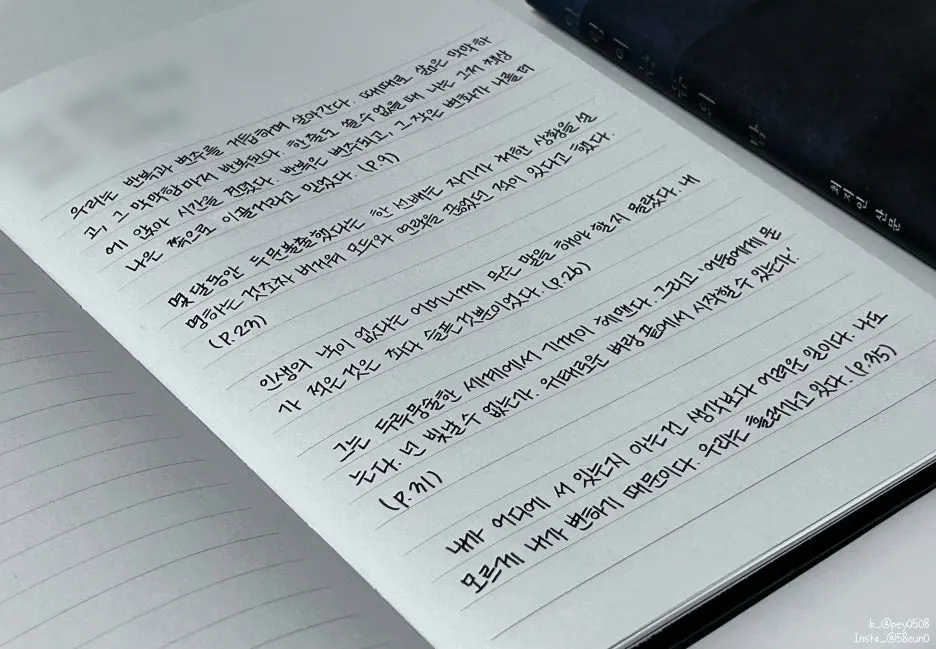 우리는 반복과 변주를 거듭하며 살아간다. 때때로 삶은 막막하
고, 그 막막함마저 반복된다. 한 줄도 쓸 수 없을 때 나는 그저 책상
에 앉아 시간을 견뎠다. 반복은 변주되고, 그 작은 변화가 나를 더
나은 쪽으로 이끌거라고 믿었다. (P.9)
몇 달 동안 두문불출했다는 한 선배는 자기가 처한 상황을 설
명하는 것조차 버거워 모두와 연락을 끊었던 적이 있다고 했다.
(P.23)
인생의 낙이 없다는 어머니께 무슨 말을 해야 할지 몰랐다. 내
가 적은 것은 죄다 슬픈 것뿐이었다. (P.26)
그는 두루뭉술한 세계에서 기꺼이 헤맨다. 그리고 '어둠에게 묻
는다. 넌 빛날 수 없는가. 위태로운 벼랑 끝에서 시작할 수 있는가.'
(P.31)
내가 어디에 서 있는지 아는 건 생각보다 어려운 일이다. 나도
모르게 내가 변하기 때문이다. 우리는 흘러가고 있다. (P.35)
최지인 산문
b_@pey0508
Insta_@58eun0